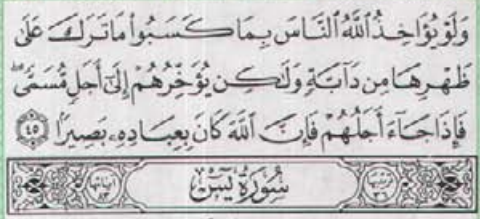 وَلَوْ يُؤَاخِذُ ٱللَّهُ ٱلنَّاسَ بِمَا كَسَبُوا۟ مَا تَرَكَ عَلَىٰ
ظَهْرِهَا مِن دَآبَّةٍ وَلَٰكِن يُؤَخِّرُهُمْ إِلَىٰٓ أَجَلٍ مُّسَمًّى ۖ
فَإِذَا جَآءَ أَجَلُهُمْ فَإِنَّ ٱللَّهَ كَانَ بِعِبَادِهِۦ بَصِيرًۢا ٤٥
سُورَةُ يسٓ